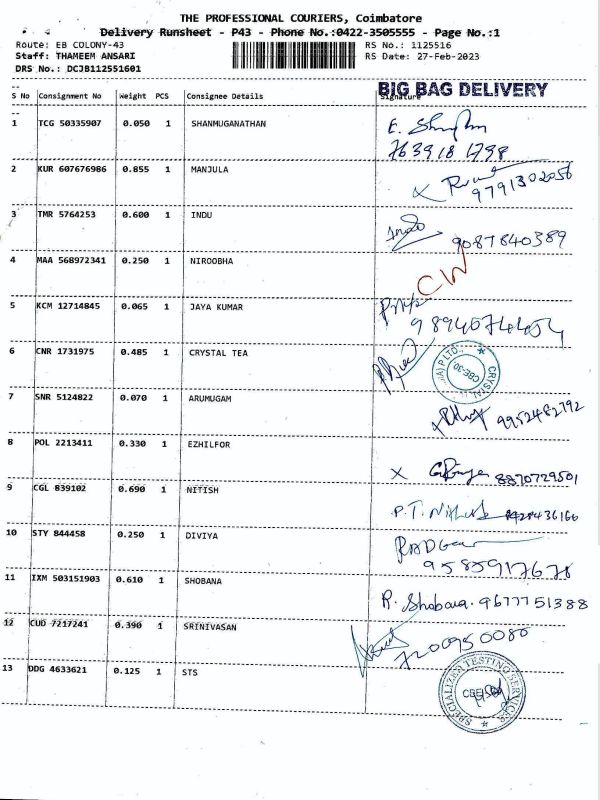 THE PROFESSIONAL COURIERS, Coimbatore
Delivery Runsheet - P43 - Phone No.:0422-3505555 - Page No.:1
Route: EB COLONY-43 RS No.: 1125516
Staff: THAMEEM ANSARI RS Date: 27-Feb-2023
DRS No.: DCJB112551601
BIG BAG DELIVERY
S No Consignment No Weight PCS Consignee Details Signature
1 TCG 50335907 0.050 1 SHANMUGANATHAN
763918 1798
2 KUR 607676986 0.855 1 MANJULA X 9791302056
3 TMR 5764253 0.600 1 INDU Indu 9087840389
4 MAA 568972341 0.250 1 NIROOBHA CW
5 KCM 12714845 0.065 1 JAYA KUMAR
6 CNR 1731975 0.485 1 CRYSTAL TEA CRYSTAL (A) P LTD. CBE-30
7 SNR 5124822 0.070 1 ARUMUGAM 9952482792
8 POL 2213411 0.330 1 EZHILFOR X 8870729501
9 CGL 839102 0.690 1 NITISH P.T.
10 STY 844458 0.250 1 DIVIYA
9585917678
11 IXM 503151903 0.610 1 SHOBANA R. Shobana. 9677751388
12 CUD 7217241 0.390 1 SRINIVASAN 7200950080
13 DDG 4633621 0.125 1 STS SPECIALIZED TESTING SERVICES